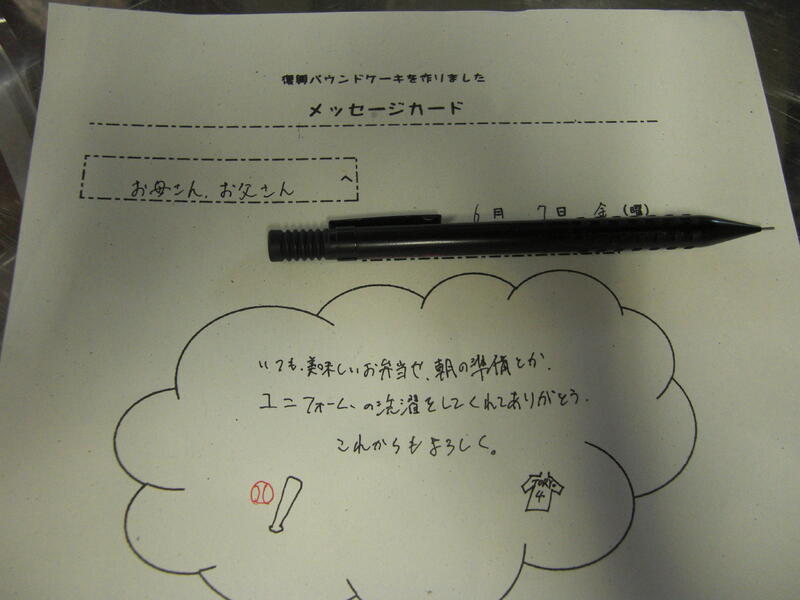 復興パウンドケーキを作りました
メッセージカード
お母さん、お父さん へ
6月 7日 金(曜)
いつも、美味しいお弁当や、朝の準備とか、
ユニフォームの洗濯をしてくれてありがとう。
これからもよろしく。
4